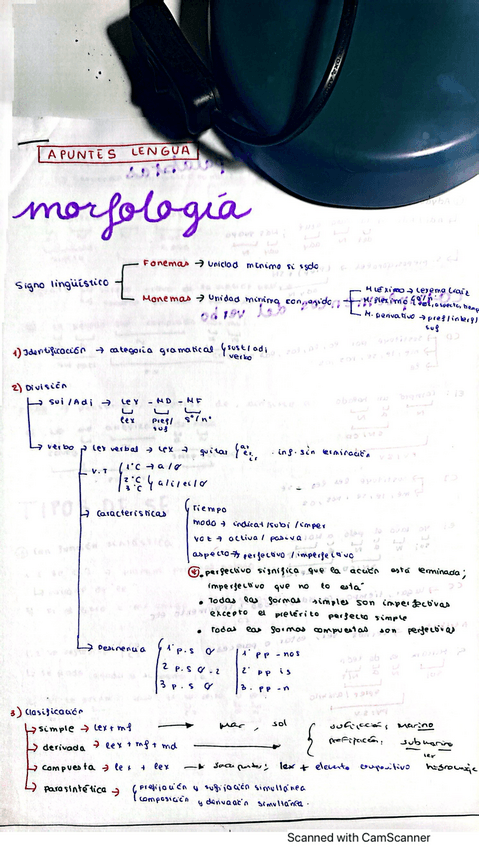 APUNTES LENGUA
morfología
Signo lingüístico
Fonemas → unidad mínima si sgdo
Monemas → unidad mínima con sgdo
M. derivativo → pref/interf/
suf
1) Identificación → categoría gramatical sust/adj
verbo
2) División
Sus/Adj → Lex - MD - MF
lex pref/ gº/nº
suf
verbo → lex verbal → lex → quitas ar er ir . inf. sin terminación
V.T 1ªC → a/Ø
2ªC
3ªC a/i/e/Ø
características
tiempo
modo → indicat/subj/imper
voz → activa/pasiva
aspecto → perfectivo/imperfectivo
• perfectivo significa que la acción está terminada;
imperfectivo que no lo está
• Todas las formas simples son imperfectivas
excepto el pretérito perfecto simple
• Todas las formas compuestas son perfectivas
Desinencia
1ª p.s Ø 1ª pp - nos
2 p.s Ø - 2 2ª pp is
3 p.s Ø 3. pp - n
3) Clasificación
simple → lex + mf → mar, sol
derivada → lex + mf + md → sufijación: marino
prefijación: submarino
compuesta → lex + lex → sacapuntas; lex + elemento compositivo
parasintética → prefijación y sufijación simultánea
composición y derivación simultánea.
Scanned with CamScanner